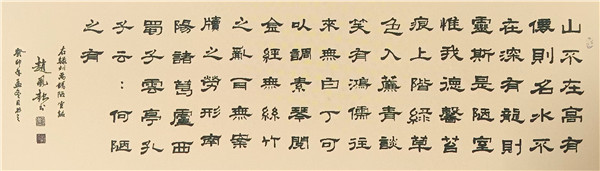 山不在高有
僊則名水不
在深有龍則
靈斯是陋室
惟我德馨苔
痕上階綠草
色入簾青談
笑有鴻儒往
來無白丁可
以調素琴閱
金經無絲竹
之亂耳無案
牘之勞形南
陽諸葛廬西
蜀子雲亭孔
子云：何陋
之有
右錄劉禹錫陋室銘
癸卯年孟冬月